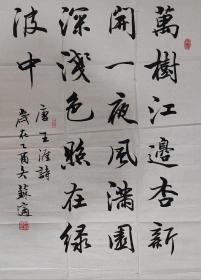 萬樹江邊杏新
開一夜風滿園
深淺色照在綠
波中
唐王涯詩
歲在乙酉冬蘇適